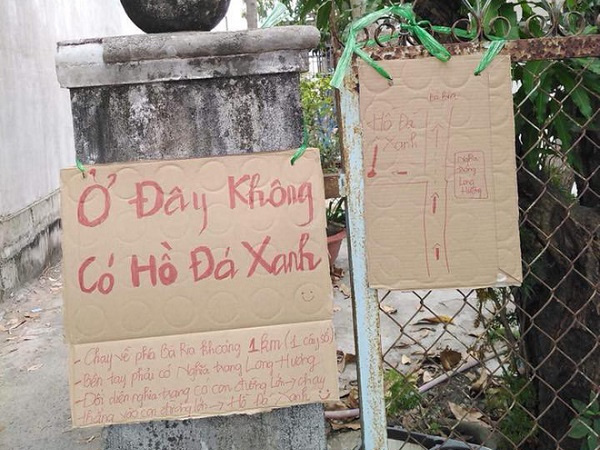 Ở Đây Không
Có Hồ Đá Xanh
- Chạy về phía Bà Rịa khoảng 1 km (1 cây số)
- Bên tay phải có Nghĩa trang Long-Hương
- Đối diện nghĩa trang có con đường lớn → chạy
thẳng vào con đường lớn → Hồ Đá Xanh
Bà Rịa
Hồ Đá
Xanh
Nghĩa
trang
Long
Hương